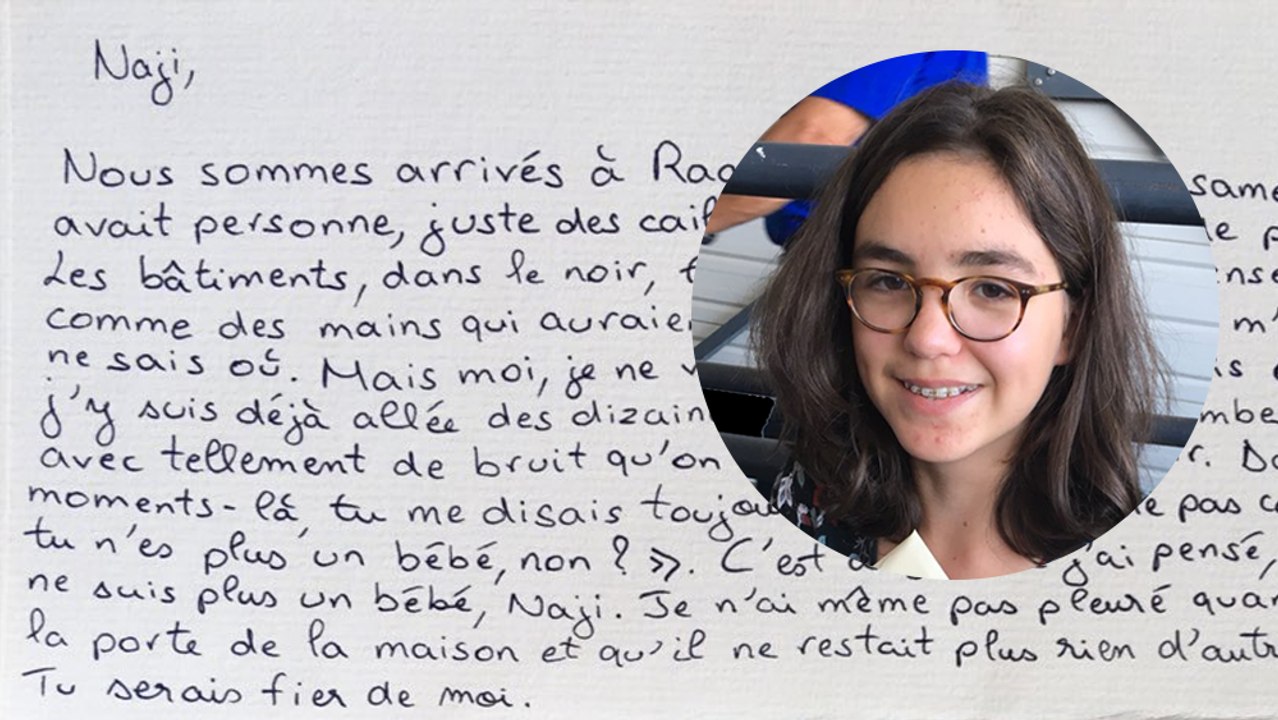 Naji,
Nous sommes arrivés à
avait personne, juste des
Les bâtiments, dans le noir,
comme des mains qui
ne sais où. Mais moi, je ne
j'y suis déjà allée des
avec tellement de bruit qu'on r.
moments-là, tu me disais pas
tu n'es plus un bébé, non ? ». C'est j'ai pensé,
ne suis plus un bébé, Naji. Je n'ai même pas pleuré
la porte de la maison et qu'il ne restait plus rien
Tu serais fier de moi.